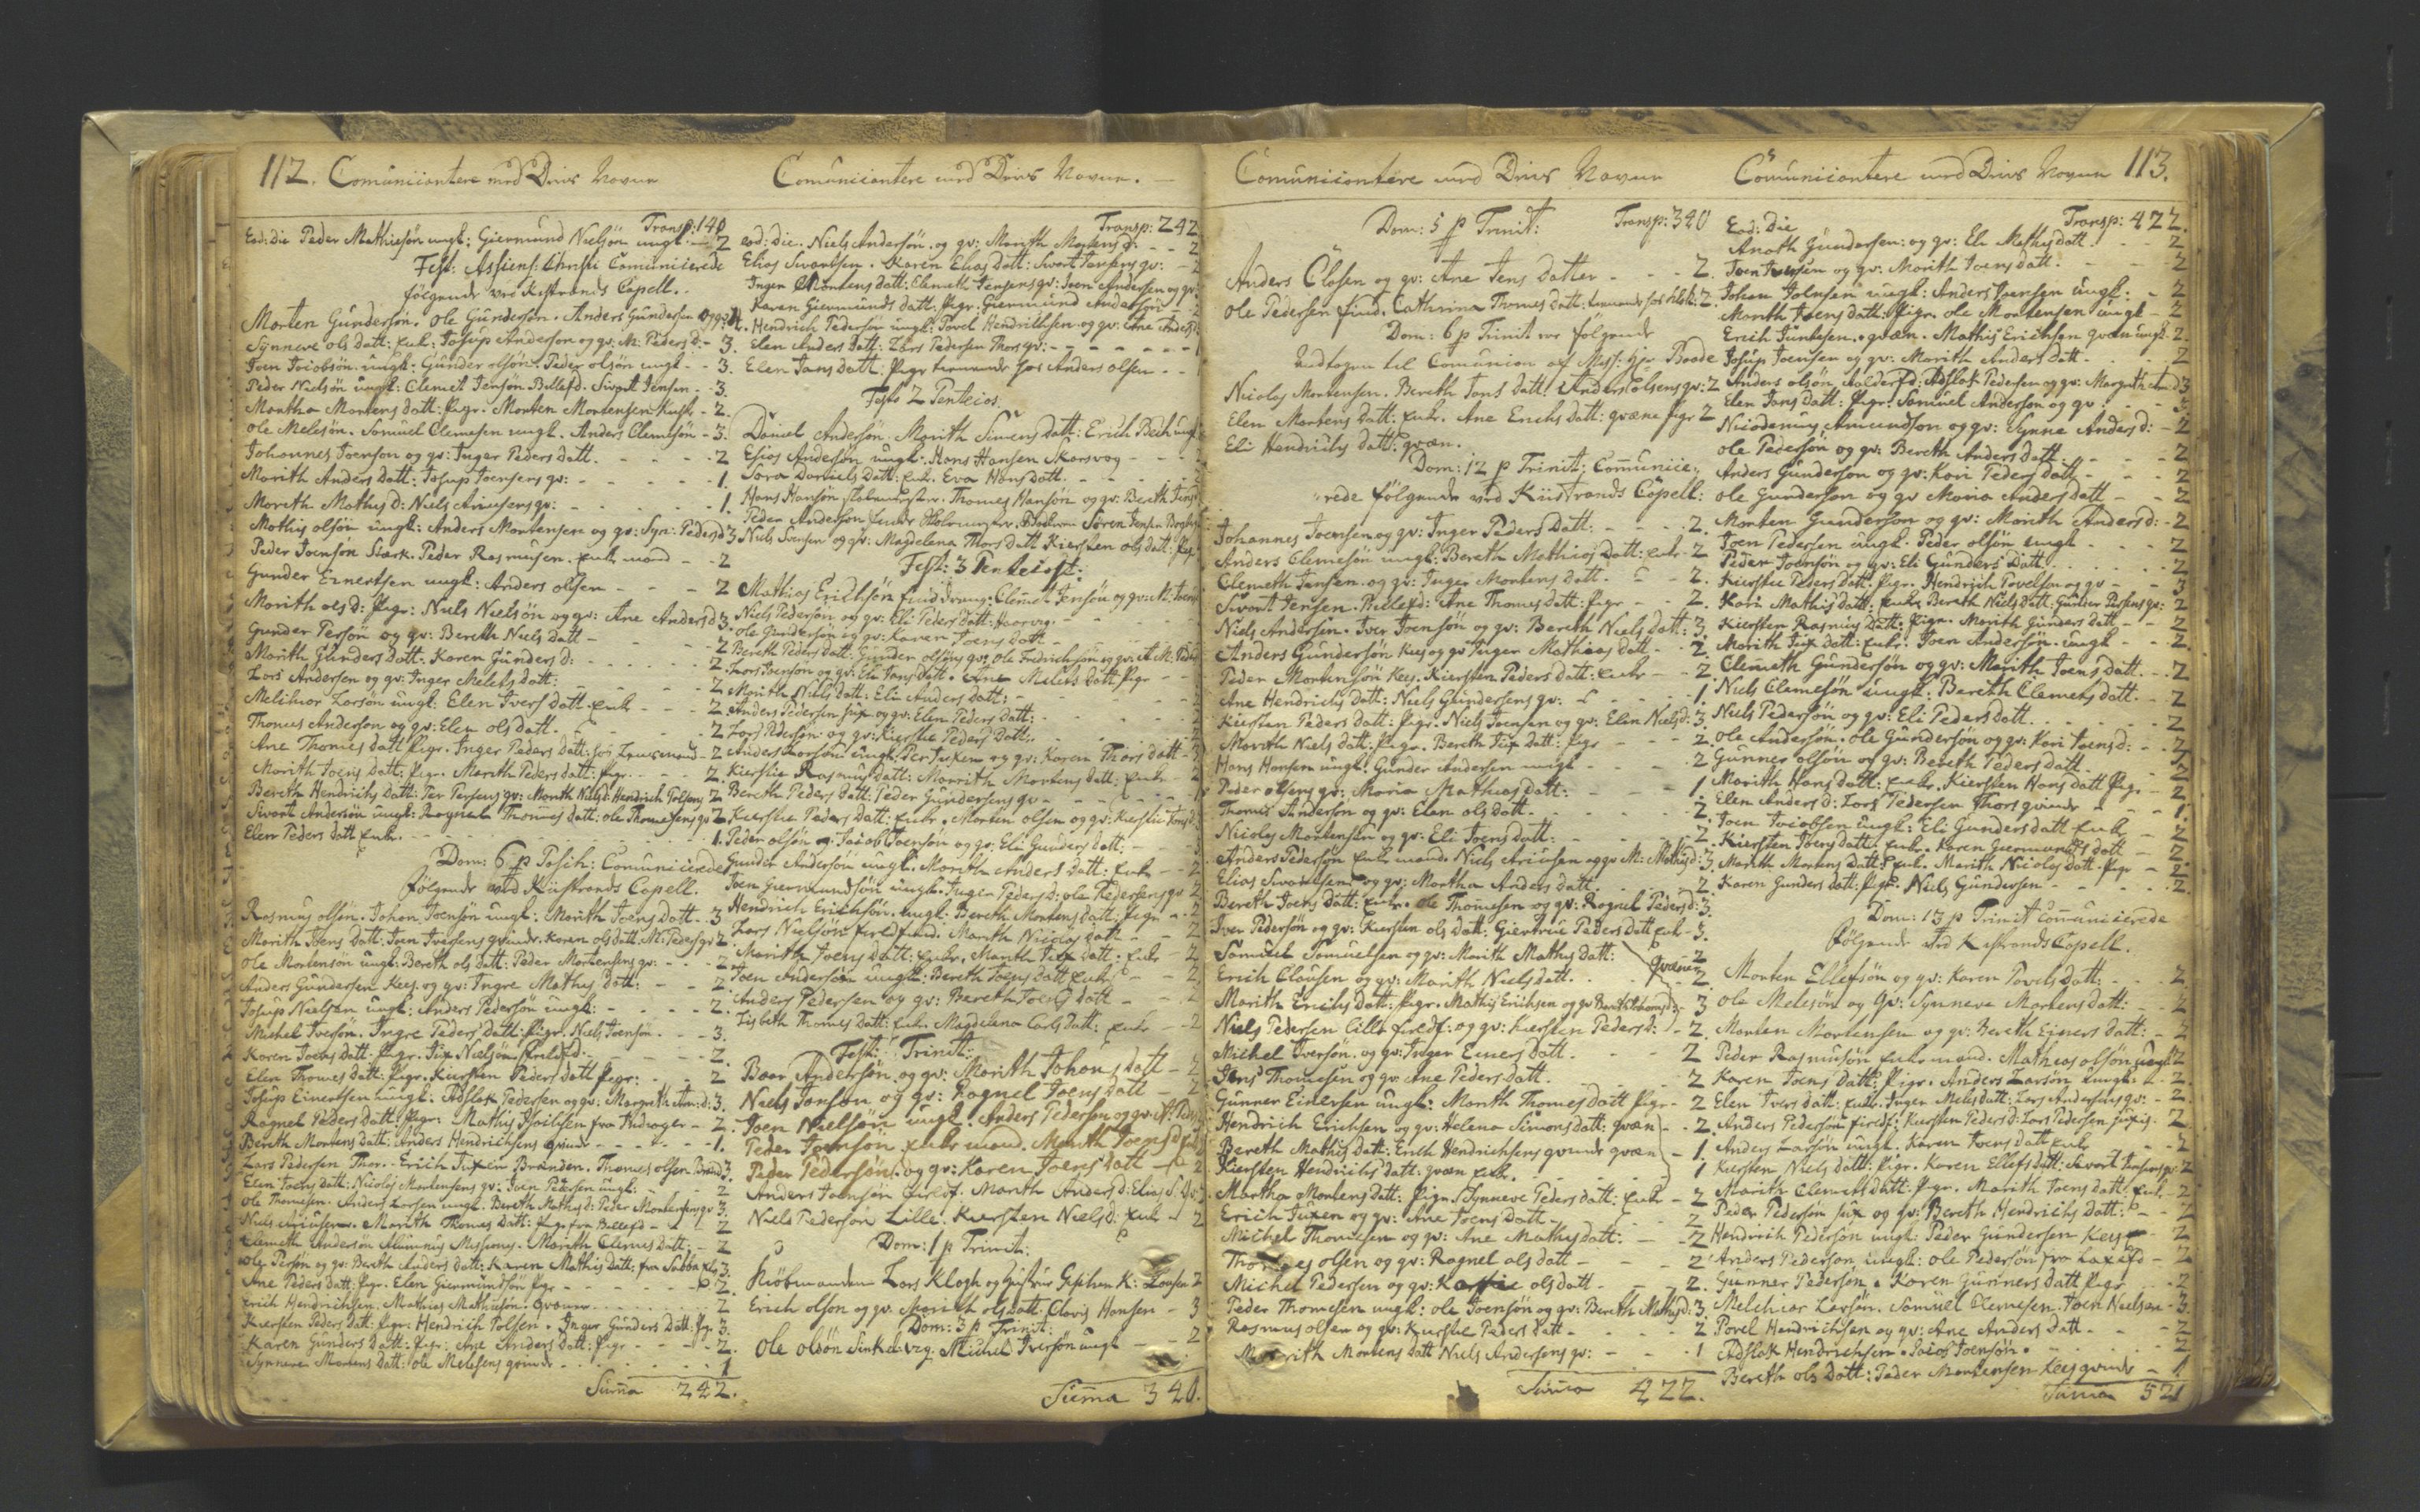 112. Comuniicantere med Deres Navne
Transp: 140
Eod: die Peder Mathiesön ungk: Giermund Nielsön ungk - 2
Fest: Assiens: Christi Comuniicerede
følgende ved Kistrands Capell.
Morten Gundersön. Ole Gundersön. Anders Gundersen og gv:
Synneve ols datt: Enk: Josup Anderson og gv: M: Peders d: - 3.
Joen Joicobsön ungk: Gunder olsön. Peder olsön ungk - - 3.
Peder Nielsön ungk: Clemet Jensön Billefd. Sivart Jensen - - 3.
Martha Mortens datt: Pigr. Morten Mortensen - 2.
Ole Melesön. Samuel Clemesen ungk. Anders Clemesön - 3.
Johannes Joenson og gv: Inger Peders datt. - - - 2
Marith Anders datt: Josup Joensens gv: - - - 1.
Moreth Mathis d: Niels Ariusens gv: - - - 1.
Mathis olsön ungk: Anders Mortensen og gv: Syn: Peders d 3
Peder Joensön Stærk. Peder Rasmusen. Enk mand - - 2
Gunder Einertsen ungk: Anders olsen - - - 2
Morith ols d: Pigr: Niels Nielsön og gv: Ane Anders d 3.
Gunder Persön og gv: Bereth Niels datt - - - 2
Marith Gunders datt. Karen Gunders d: - - - 2.
Lars Andersen og gv: Inger Melets datt: - - - 2
Melchior Larsön ungk: Elen Ivers datt Enk - - - 2
Thomes Anderson og gv: Elen ols datt. - - - 2
Ane Thomes datt Pigr. Inger Peders datt: hos - 2
Marith Joens datt: Pigr. Marith Peders datt: Pigr. - - - 2.
Bereth Hendrichs datt: Per Persens gv: Marith Niels d: Hendrich Polsens 2
Sivart Andersön ungk: Ragnel Thomes datt: ole Thomesens gv 2
Elen Peders datt Enk. - - - 1.
Dom: 6 p Pasch: Comuniicerede
følgende ved Kiistrands Capell.
Rasmus olsön. Johan Joensön ungk: Marith Joens datt - 3
Marith Joens datt. Joen Iversens qvinde. Karen ols datt. M: Peders gv 2.
Ole Mortensön ungk: Bereth ols datt: Peder Mortensens gv: - - - 2
Anders Gundersen Keej. og gv: Ingre Mathis datt: - - 2
Josup Nielsen ungk: Anders Pedersön ungk: - - - 2.
Michel Iversön. Ingre Peders datt: Pigr. Niels Joensön. - - 3.
Karen Joens datt. Pigr. Jux Nielsön - - - 2.
Elen Thomes datt: Pigr. Kiersten Peders datt Pigr: - - 2
Josup Einertsen ungk: Adslak Pedersen og gv: Margreth: And: d: 3.
Ragnel Peders datt: Pigr. Mathis fra - 2.
Bereth Mortens datt: Anders Hendrichsens qvinde - - - 1.
Lars Pedersen Thor. Erich Juxen Brænden. Thomes olsen Brænd 3.
Elen Joens datt: Nicolaj Mortensens gv: Joen Pedersen ungk: - - 2
Ole Thomesen. Anders Larsen ungk. Bereth Mathis d: Peder Mortensens gv 3.
Niels Ariusen. Marith Thomes datt: Pigr fra Billefd - - 2
Clemeth Andersön Alumnus Missions. Marith Clemes datt: - - 2
Ole Persön og gv: Bereth Anders datt: Karen Mathis datt: fra 3.
Ane Peders datt: Pigr. Elen Giermundsön Pigr - - - 2.
Erich Hendrichsen. Mathias Mathiesön. Qvæner - - - 2
Kiersten Peders datt: Pigr. Hendrich Polsen. Inger Gunders datt: Pig. 3.
Karen Gunders datt: Pigr: Ane Anders datt: Pigr - - - 2.
Synneve Mortens datt: ole Melesens qvinde - - - 1
Summa 242.
Comuniicantere med Deres Navne.
Transp: 242
Eod: die. Niels Andersön og gv: Marith Mortens d: - - 2
Elias Sivartsen. Karen Elias datt: Sivart Jensens gv: - 2
Inger Mortens datt: Clemeth Jensens gv: Joen Andersen og gv:
Karen Giermunds datt: Pigr. Giermund Andersön - 2
Hendrich Pedersön ungk: Povel Hendrichsen og gv: Ane Anders d:
Elen Anders datt: Lars Pedersen Thors gv: - - - 1
Elen Jans datt. Pigr tienende hos Anders olsen - - 1
Festo 2 Penteios.
Daniel Andersön. Marith Simens datt: Erich Bech ungk
Esias Andersön ungk. Hans Hansen Skarsvog - - -
Sara Daniels datt: Enk. Eva Hans datt. - - -
Hans Hansön. Thomes Hansön og gv: Bereth Jens
Peder Andersön. Sören Jensen
Niels Svensen og gv: Magdelena Thors datt Kiersten ols datt: Pig.
Fest: 3 Penteiost:
Mathias Erichsön find dreng. Clemet Jensön og gv: M: Iversd
Niels Pedersön og gv: Eli Peders datt:
Ole Gundersön og gv: Karen Joens datt - - -
Bereth Peders datt: Gunder olsöns gv: Ole Fredrichsön og gv: M: Peders
Lars Joensön og gv: Eli Jans datt. Ane Melets datt: Pigr - - -
Marith Niels datt: Eli Anders datt: - - -
Anders Pedersen Jux og gv: Elen Peders datt: - - -
Lars Pedersön og gv: Kierstie Peders datt: - - -
Anders Larsön ungk: Per Juxen og gv: Karen Thors datt - 3
Kierstie Rasmus datt: Marith Mortens datt: Enk - 2
Bereth Peders datt: Peder Gundersens gv - - - 1
Kierstie Peders datt: Enk. Morten olsen og gv: Kierstie Jons d:
Peder olsön. Jacob Joensön og gv: Eli Gunders datt: - -
Gunder Andersön ungk: Marith Anders datt: Enk - - 2
Joen Giermundsön ungk. Inger Peders d: ole Pedersens gv 2
Hendrich Erichsön. ungk: Bereth Mortens datt: Pigr - 2
Lars Nielsön. Marith Nicolaj datt - - 2
Marith Joens datt: Enk. Marith Jux datt: Enk - 2
Joen Andersön ungk: Bereth Joens datt Enk - - 2
Anders Pedersen og gv: Bereth Joens datt - - 2
Lisbeth Thomes datt: Enk. Magdelena Carls datt: Enk - - 2
Fest: Trinit:
Baar Andersön og gv: Marith Johans datt - 2
Niels Jonsön og gv: Ragnel Joens datt - 2
Joen Nielsön ungk. Anders Pedersön og gv: A: Peders
Peder Joensön Enk mand. Marith Joens d
Peder Pedersön. og gv: Karen Joens datt - 2
Anders Joensön. Marith Anders d: Elias
Niels Pedersön Lille. Kiersten Niels d: Enk - 2
Dom: 1 p Trinit:
Kiöbmanden Lars Klogh og
Erich olsön og gv. Marith ols datt. Clavis Hansen - 3
Dom: 3 p Trinit:
Ole olsön. Michel Iversön ungk - 2
Summa 340.
Comuniicantere med Deres Navne
Dom: 5 p Trinit: Transp: 340
Anders Olosen og gv: Ane Jens datter - - - 2.
Ole Pedersen find. Cathrina Thomes datt: tienende hos 2.
Dom: 6 p Trinit var følgende
Andtagen til Comunion af Miss: Hr Boode
Nicolaj Mortensen. Bereth Jans datt: Anders Olsens gv: 2
Elen Mortens datt: Enk. Ane Erichs datt: qvæne Pigr 2
Eli Hendrichs datt: qvæn.
Dom: 12 p Trinit: Comuniice,,
,,rede følgende ved Kiistrands Capell:
Johannes Joensen og gv: Inger Peders datt: - - - 2.
Anders Clemesön ungk: Bereth Mathias datt: Enk - 2
Clemeth Jensen og gv: Inger Mortens datt. - - 2.
Sivart Jensen. Billefd: Ane Thomes datt: Pigr - - 2.
Niels Andersen. Iver Joensön og gv: Bereth Niels datt: 3.
Anders Gundersön Keej og gv Inger Mathias datt - - 2.
Peder Mortensön Keej. Kiersten Peders datt: Enk - - 2.
Ane Hendrichs datt: Niels Gundersens gv: - - - 1.
Kiersten Peders datt: Pigr. Niels Joensen og gv: Elen Niels d: 3.
Marith Niels datt: Pigr. Bereth Jux datt: Pigr - - - 2.
Hans Hansen ungk: Gunder Andersen ungk - - - 2
Peder olsens gv: Maria Mathias datt: - - - 1
Thomes Andersön og gv: Elen ols datt. - - - 2
Nicolaj Mortensön og gv: Eli Joens datt: - - - 2
Anders Pedersön Enk mand. Niels Ariusen og gv M: Mathis d: 3.
Elias Sivartsen og gv: Martha Anders datt. - - 2.
Bereth Joens datt: Enk. Ole Thomesen og gv: Ragnel Peders d: 3.
Iver Pedersön og gv: Kiersten ols datt: Giertrue Peders datt Enk - 3.
Samuel Samuelsen og gv: Marith Mathis datt: Qvæner 2
Erich Clausen og gv: Marith Niels datt. - - 2
Marith Erichs datt: Pigr. Mathis Erichsen og gv - 3
Niels Pedersen Lille: og gv: Kiersten Peders d: - 2.
Michel Iversön. og gv: Inger Einers datt. - - 2
Jens Thomesen og gv Ane Peders datt. - - 2
Gunner Einersen ungk: Marith Thomes datt Pigr - 2
Hendrich Erichsen og gv: Helena Simons datt: qvæn - - 2.
Bereth Mathis datt: Erich Hendrichsens qvinde qvæn - 1.
Kiersten Hendrichs datt: qvæn Enk. - - - 1
Martha Mortens datt: Pigr. Synneve Peders datt: Enk - 2
Erich Juxen og gv: Ane Joens datt - - - 2
Michel Thomesen og gv: Ane Mathis datt: - - 2
Thomes olsen og gv: Ragnel ols datt - - - 2
Michel Pedersen og gv: ols datt - - - 2.
Peder Thomesen ungk: ole Joensön og gv: Bereth Mathis d: 3.
Rasmus olsen og gv: Kierstie Peders datt - - - 2
Marith Mortens datt Niels Andersens gv: - - - 1
Summa 422.
Comuniicantere med Deres Navne 113.
Transp: 422.
Eod: Die
Anoth Gundersen: og gv: Eli Mathis datt - - - 2
Joen Iversen og gv: Marith Joens datt. - - - 2
Johan Joensen ungk: Anders Joensen ungk: - 2
Marith Joens datt: Pigr. ole Mortensen ungk - 2
Erich Juntesen. qvæn. Mathis Erichsen qvæn ungk. 2.
Josup Joensen og gv: Marith Anders datt - - - 2
Anders olsön. Adslak Pedersen og gv: Margreth And: d 3
Elen Jans datt: Pigr. Samuel Andersön og gv - - - 3.
Nicodemus Amundson og gv: Synne Anders d: - 2
Ole Pedersön og gv: Bereth Anders datt - - - 2
Anders Gundersön og gv: Kari Peders datt - - - 2
Ole Gundersön og gv Maria Anders datt - - 2
Morten Gundersön og gv: Marith Anders d: - 2
Joen Pedersen ungk. Peder olsön ungk - - - 2
Peder Joensön og gv: Eli Gunders datt. - - - 2
Kierstie Peders datt: Pigr. Hendrich Povelsen og gv - - 3
Kari Mathis datt: Enk. Bereth Niels datt: Gunder Persens gv: 2
Kiersten Rasmus datt: Pigr. Marith Gunders datt - - 2.
Marith Jux datt: Enk. Joen Andersön. ungk - 2.
Clemeth Gundersön og gv: Marith Joens datt. - 2
Niels Clemesön ungk: Bereth Clemets datt. - 2
Niels Pedersön og gv: Eli Peders datt. - - - 2
Ole Andersön. ole Gundersön og gv: Kari Joens d: - - 3
Gunner olsön og gv: Bereth Peders datt - - 2
Marith Hans datt: Enk. Kiersten Hans datt Pigr - 2.
Elen Anders d: Lars Pedersen Thors qvinde - - 1.
Joen Joicobsen ungk: Eli Gunders datt Enk - 2
Kiersten Joens datt: Enk. Karen Giermunds datt - 2.
Marith Mortens datt: Enk. Marith Nicolaj datt. Pigr - 2.
Karen Gunders datt: Pigr. Niels Gundersen - - - 2.
Dom: 13 p Trinit Comuniicerede
følgende ved Kistrands Capell.
Morten Ellefsön og gv: Karen Povels datt: - - 2.
Ole Melesön og gv: Synneve Mortens datt: - 2
Morten Mortensen og gv: Bereth Einers datt: - 2
Peder Rasmusön Enk mand. Mathias olsön ungk 2
Karen Joens datt: Pigr. Anders Larsön ungk: - 2.
Elen Ivers datt: Enk. Inger Meles datt: Lars Andersens gv: - 2.
Anders Pedersön. Kiersten Peders d: Lars Pedersen - 2
Anders Larsön ungk. Karen Joens datt Enk - - 2
Kiersten Niels datt: Pigr. Karen Ellefs datt: Sivart Jensens gv: 2
Marith Clemets datt: Pigr. Marith Joens datt: Enk - 2
Peder Pedersön Jux og gv: Bereth Hendrichs datt: - - 2
Hendrich Pedersön ungk: Peder Gundersen Keej - 2
Anders Pedersön ungk: ole Pedersön fra Laxefd - 2
Gunner Pedersön. Karen Gunners datt Pigr - - 2
Melchior Larsön. Samuel Clemesen. Joen Nielsen - 3.
Povel Hendrichsen og gv: Ane Anders datt - - - 2
Adslak Hendrichsen. Jacob Joensön. - - - 2
Bereth ols datt: Peder Mortensen Keej qvinde - 1
Summa 521